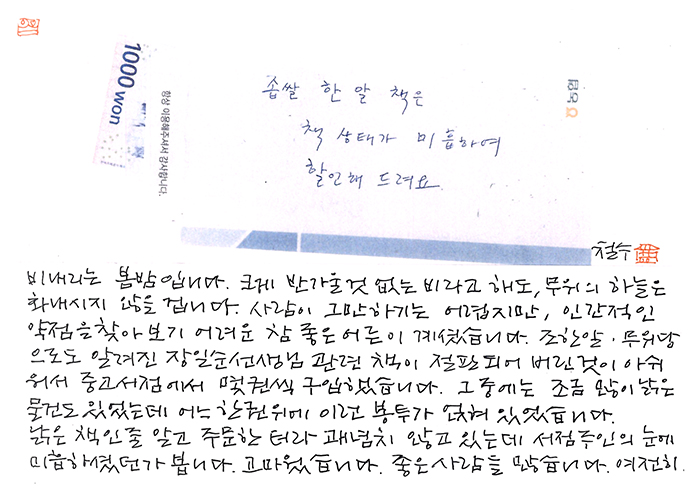 1000 won
항상 이용해주셔서 감사합니다.
좁쌀 한 알 책은
책 상태가 미흡하여
할인해 드려요.
철수
비내리는 봄밤입니다. 크게 반가울것 없는 비라고 해도, 무위의 하늘은
화내시지 않을 겁니다. 사람이 그만하기는 어렵지만, 인간적인
약점을 찾아보기 어려운 참 좋은 어른이 계셨습니다. 조한알·무위당
으로도 알려진 장일순선생님 관련 책이 절판되어 버린것이 아쉬
워서 중고서점에서 몇권씩 구입했습니다. 그 중에는 조금 많이 낡은
물건도 있었는데 어느 한권위에 이런 봉투가 얹혀 있었습니다.
낡은 책인줄 알고 주문한 터라 괘념치 않고 있는데 서점주인의 눈에
미흡하셨던가 봅니다. 고마웠습니다. 좋은사람들 많습니다. 여전히.